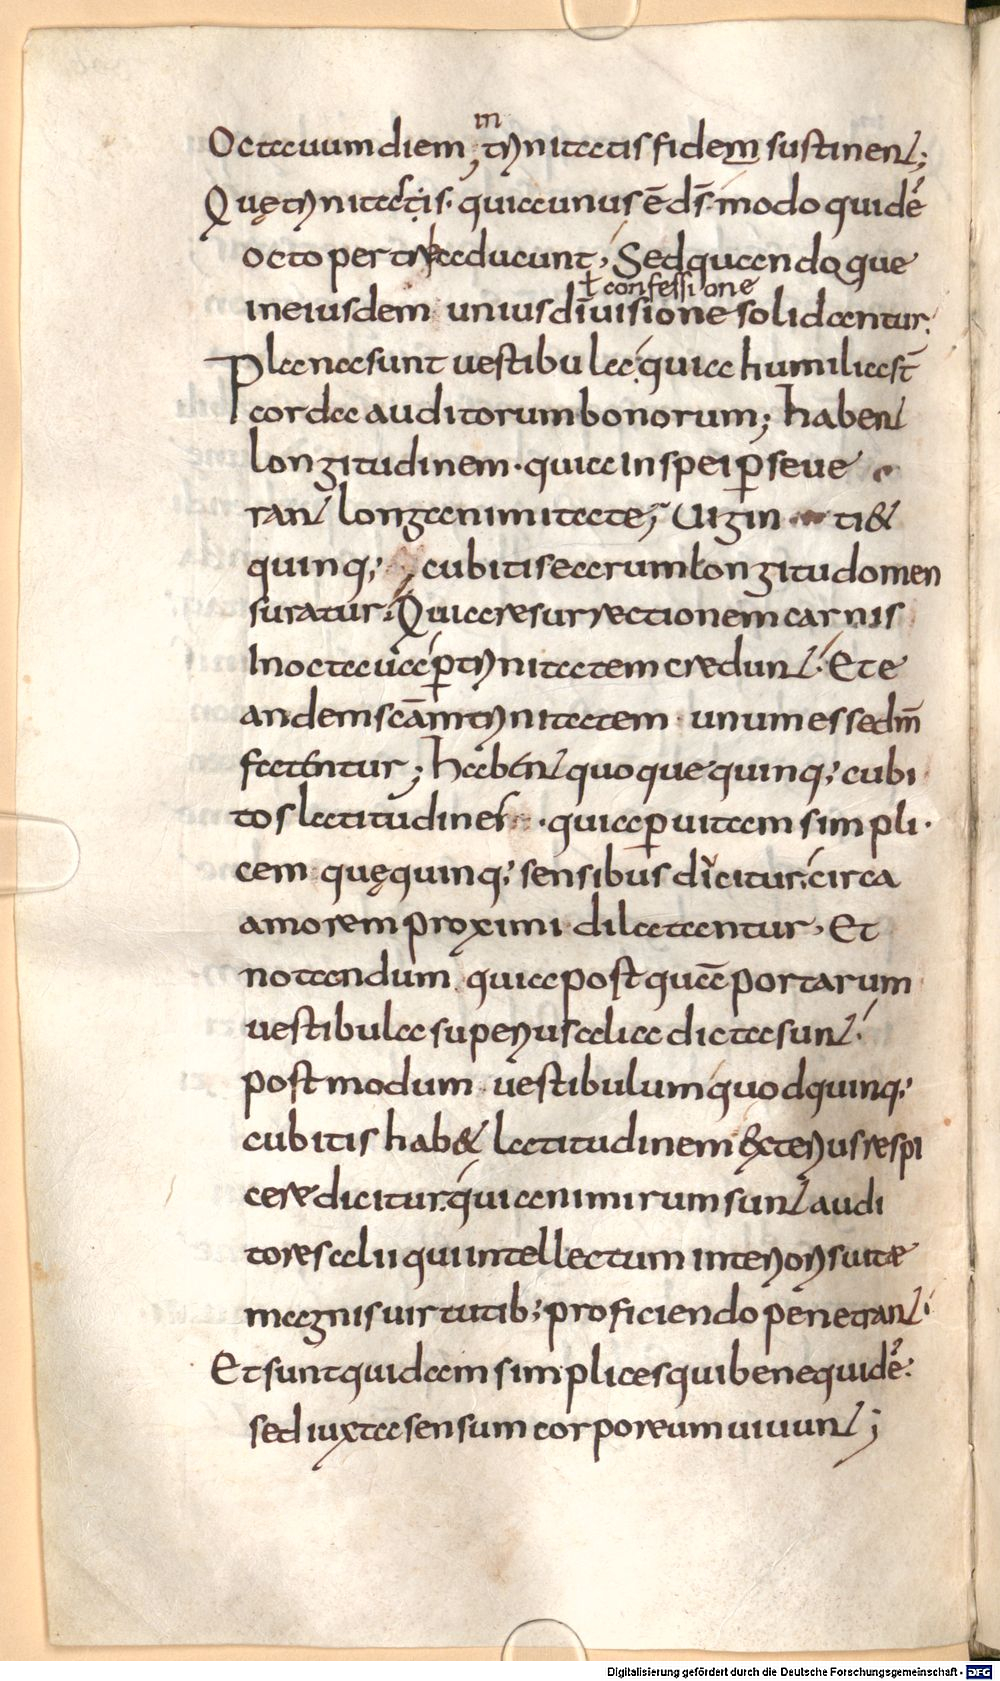 Octauum diem in trinitatis fidem sustinent;
Quę trinitatis. quia unus ē ds̄. modo quidē
octo per tria ducunt, Sed quando que
in eiusdem unius diuisione ł confessione solidantur.
Plane sunt uestibula. quia humilia st̄
corda auditorum bonorum; habent
longitudinem. quia in spei ꝑseue
rant longanimitate; Uigin ti &
quinq; cubitis earum longitudo men
suratur. Qui a resurrectionem carnis
In octaua ꝑ trinitatem credunt. Et e
andem scām trinitatem unum esse dm̄
fatentur; habent quoque quinq; cubi
tos latitudines. quia ꝑ uitam simpli
cem quę quinq; sensibus dicitur. circa
amorem proximi dilatantur. Et
notandum. quia postquā portarum
uestibula superius alia dicta sunt.
post modum uestibulum quod quinq;
cubitis hab& latitudinem &xterius respi
cere dicitur. quia nimirum sunt audi
tores alii qui intellectum interioris uitæ
magnis uirtutib; proficiendo penetrant.
Et sunt quidam simplices qui bene quidē.
sed iuxta sensum corporeum uiuunt;
Digitalisierung gefördert durch die Deutsche Forschungsgemeinschaft - DFG